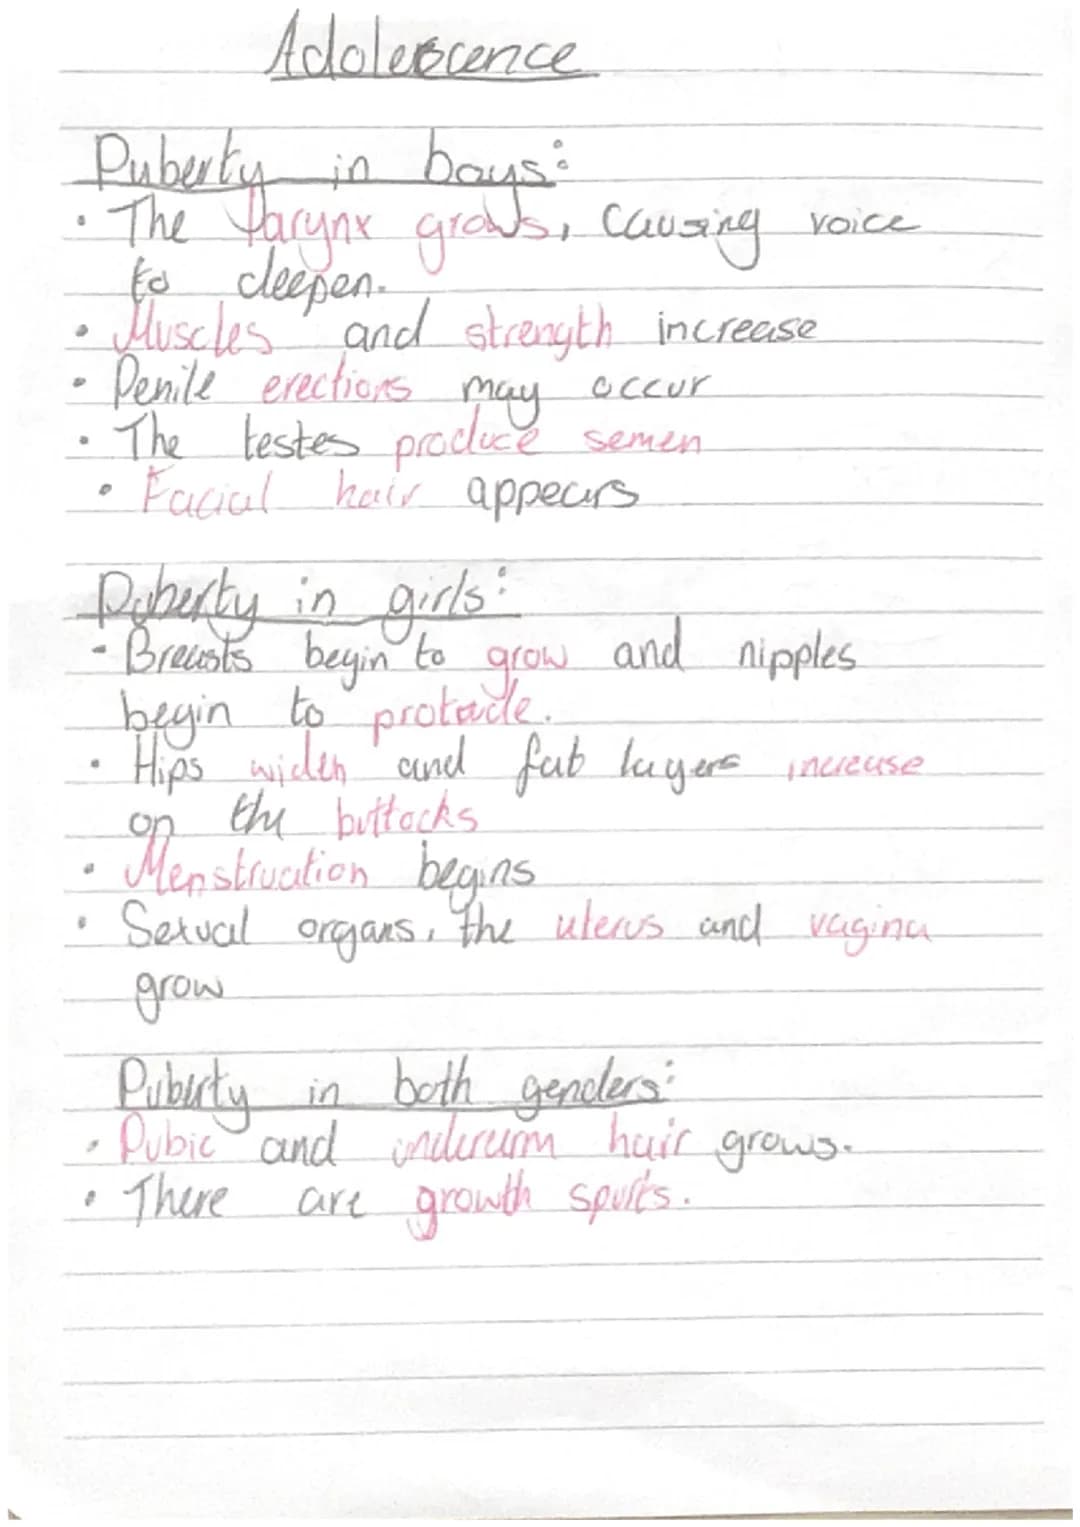 Adolescence
Puberty in boys:
• The larynx grows, causing voice
to deepen.
• Muscles and strength increase
• Penile erections may occur
• The testes produce semen
• Facial hair appears
Puberty in girls:
- Breasts begin to grow and nipples
begin to protrude.
• Hips widen and fat layers increase
on the buttocks
• Menstruation begins
• Sexual organs, the uterus and vagina
grow
Puberty in both genders:
• Pubic and underarm hair grows.
• There are growth spurts.